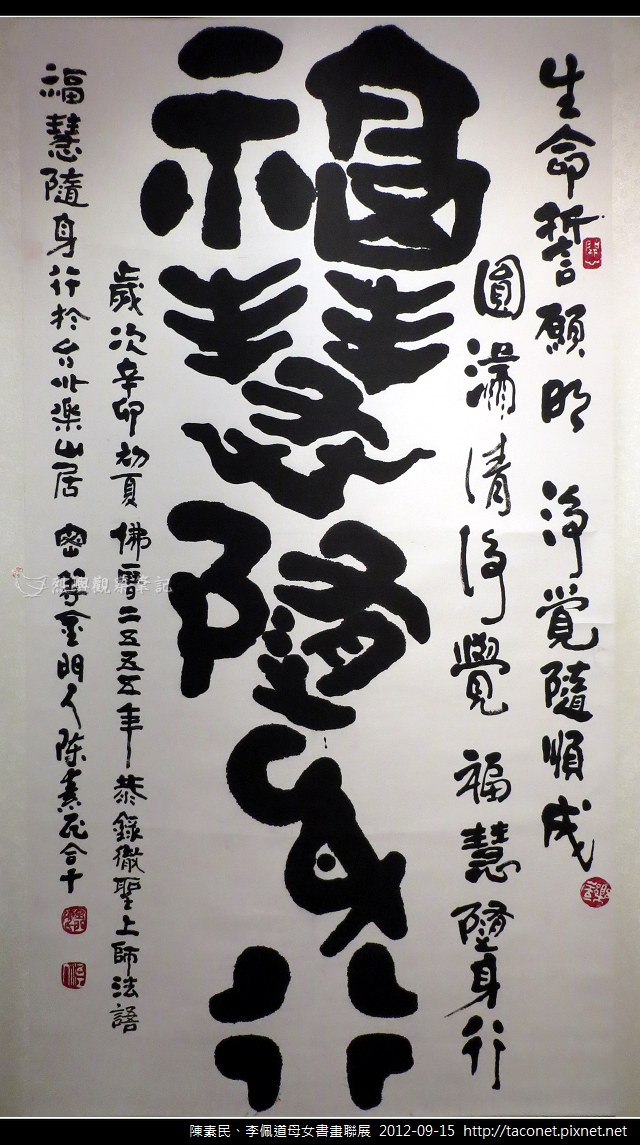 生命誓願明 淨覺隨順成
圓滿清淨覺 福慧隨身行
福慧隨身行
歲次辛卯初夏 佛曆二五五五年 恭錄徹聖上師法語
福慧隨身行於台北樂山居 金門人陳素民合十
觀築筆記
陳素民、李佩道母女書畫聯展 2012-09-15 http://taconet.pixnet.net